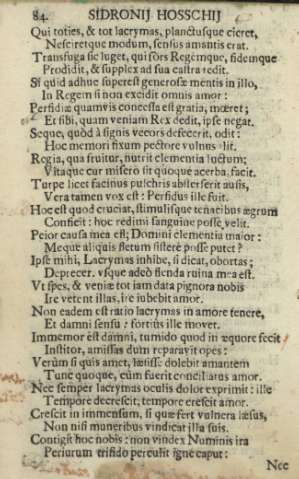 84. SIDRONIJ HOSSCHIJ
Qui toties, & tot lacrymas, planctusque cieret,
Nesciretque modum, sensus amantis erat.
Transfuga sic luget, qui sors Regemque, fidemque
Prodidit, & supplex ad sua castra redit.
Si quid adhuc superest generosæ mentis in illo,
In Regem si non excidit omnis amor:
Perfidiæ quamvis concessa est gratia, mœret;
Et sibi, quam veniam Rex dedit, ipse negat.
Seque, quòd à signis vecors defecerit, odit:
Hoc memori fixum pectore vulnus alit.
Regia, qua fruitur, nutrit clementia luctum;
Vitaque cur misero sit quoque acerba, facit.
Turpe licet facinus pulchris absterserit ausis,
Vera tamen vox est: Perfidus ille fuit.
Hoc est quod cruciat, stimulisque tenacibus ægrum
Conficit: hoc redimi sanguine posse velit.
Peior causa mea est; Domini clementia maior:
Meque aliquis fletum sistere posse putet?
Ipse mihi, Lacrymas inhibe, si dicat, obortas;
Deprecer. vsque adeò flenda ruina mea est.
Vt spes, & veniæ tot iam data pignora nobis
Ire vetent illas, ire iubebit amor.
Non eadem est ratio lacrymas in amore tenere,
Et damni sensu: fortiùs ille movet.
Immemor est damni, tumido quod in æquore fecit
Institor, amissas dum reparavit opes:
Verùm si quis amet, læsisse dolebit amantem
Tunc quoque, cùm fuerit conciliatus amor.
Nec semper lacrymas oculis dolor exprimit: ille
Tempore decrescit, tempore crescit amor.
Crescit in immensum, si quæ fert vulnera læsus,
Non nisi muneribus vindicat illa suis.
Contigit hoc nobis: non vindex Numinis ira
Periurum trifido perculit igne caput:
Nec